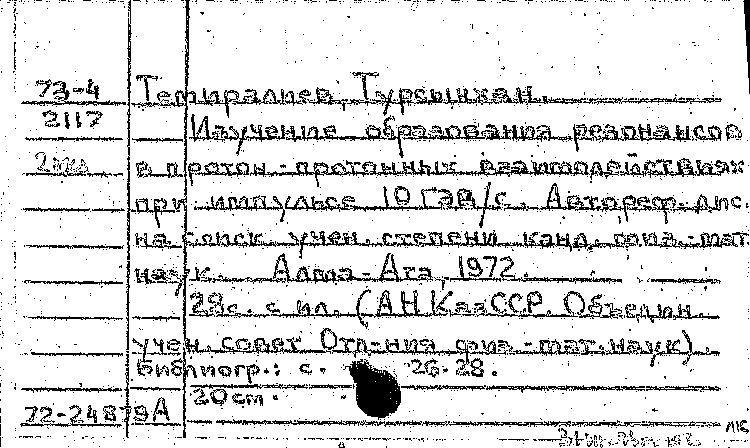 73-4 Темиралиев, Турсынхан.
2117 Изучение образования резонансов
2 экз. в протон-протонных взаимодействиях
при импульсе 10 Гэв/с. Автореф. дис.
на соиск. учен. степени канд. физ.-мат.
наук. Алма-Ата, 1972.
28с. с ил. (АН КазССР. Объедин.
учен. совет Отд-ния физ-мат. наук).
Библиогр.: с. 26-28.
20 см.
72-24879А